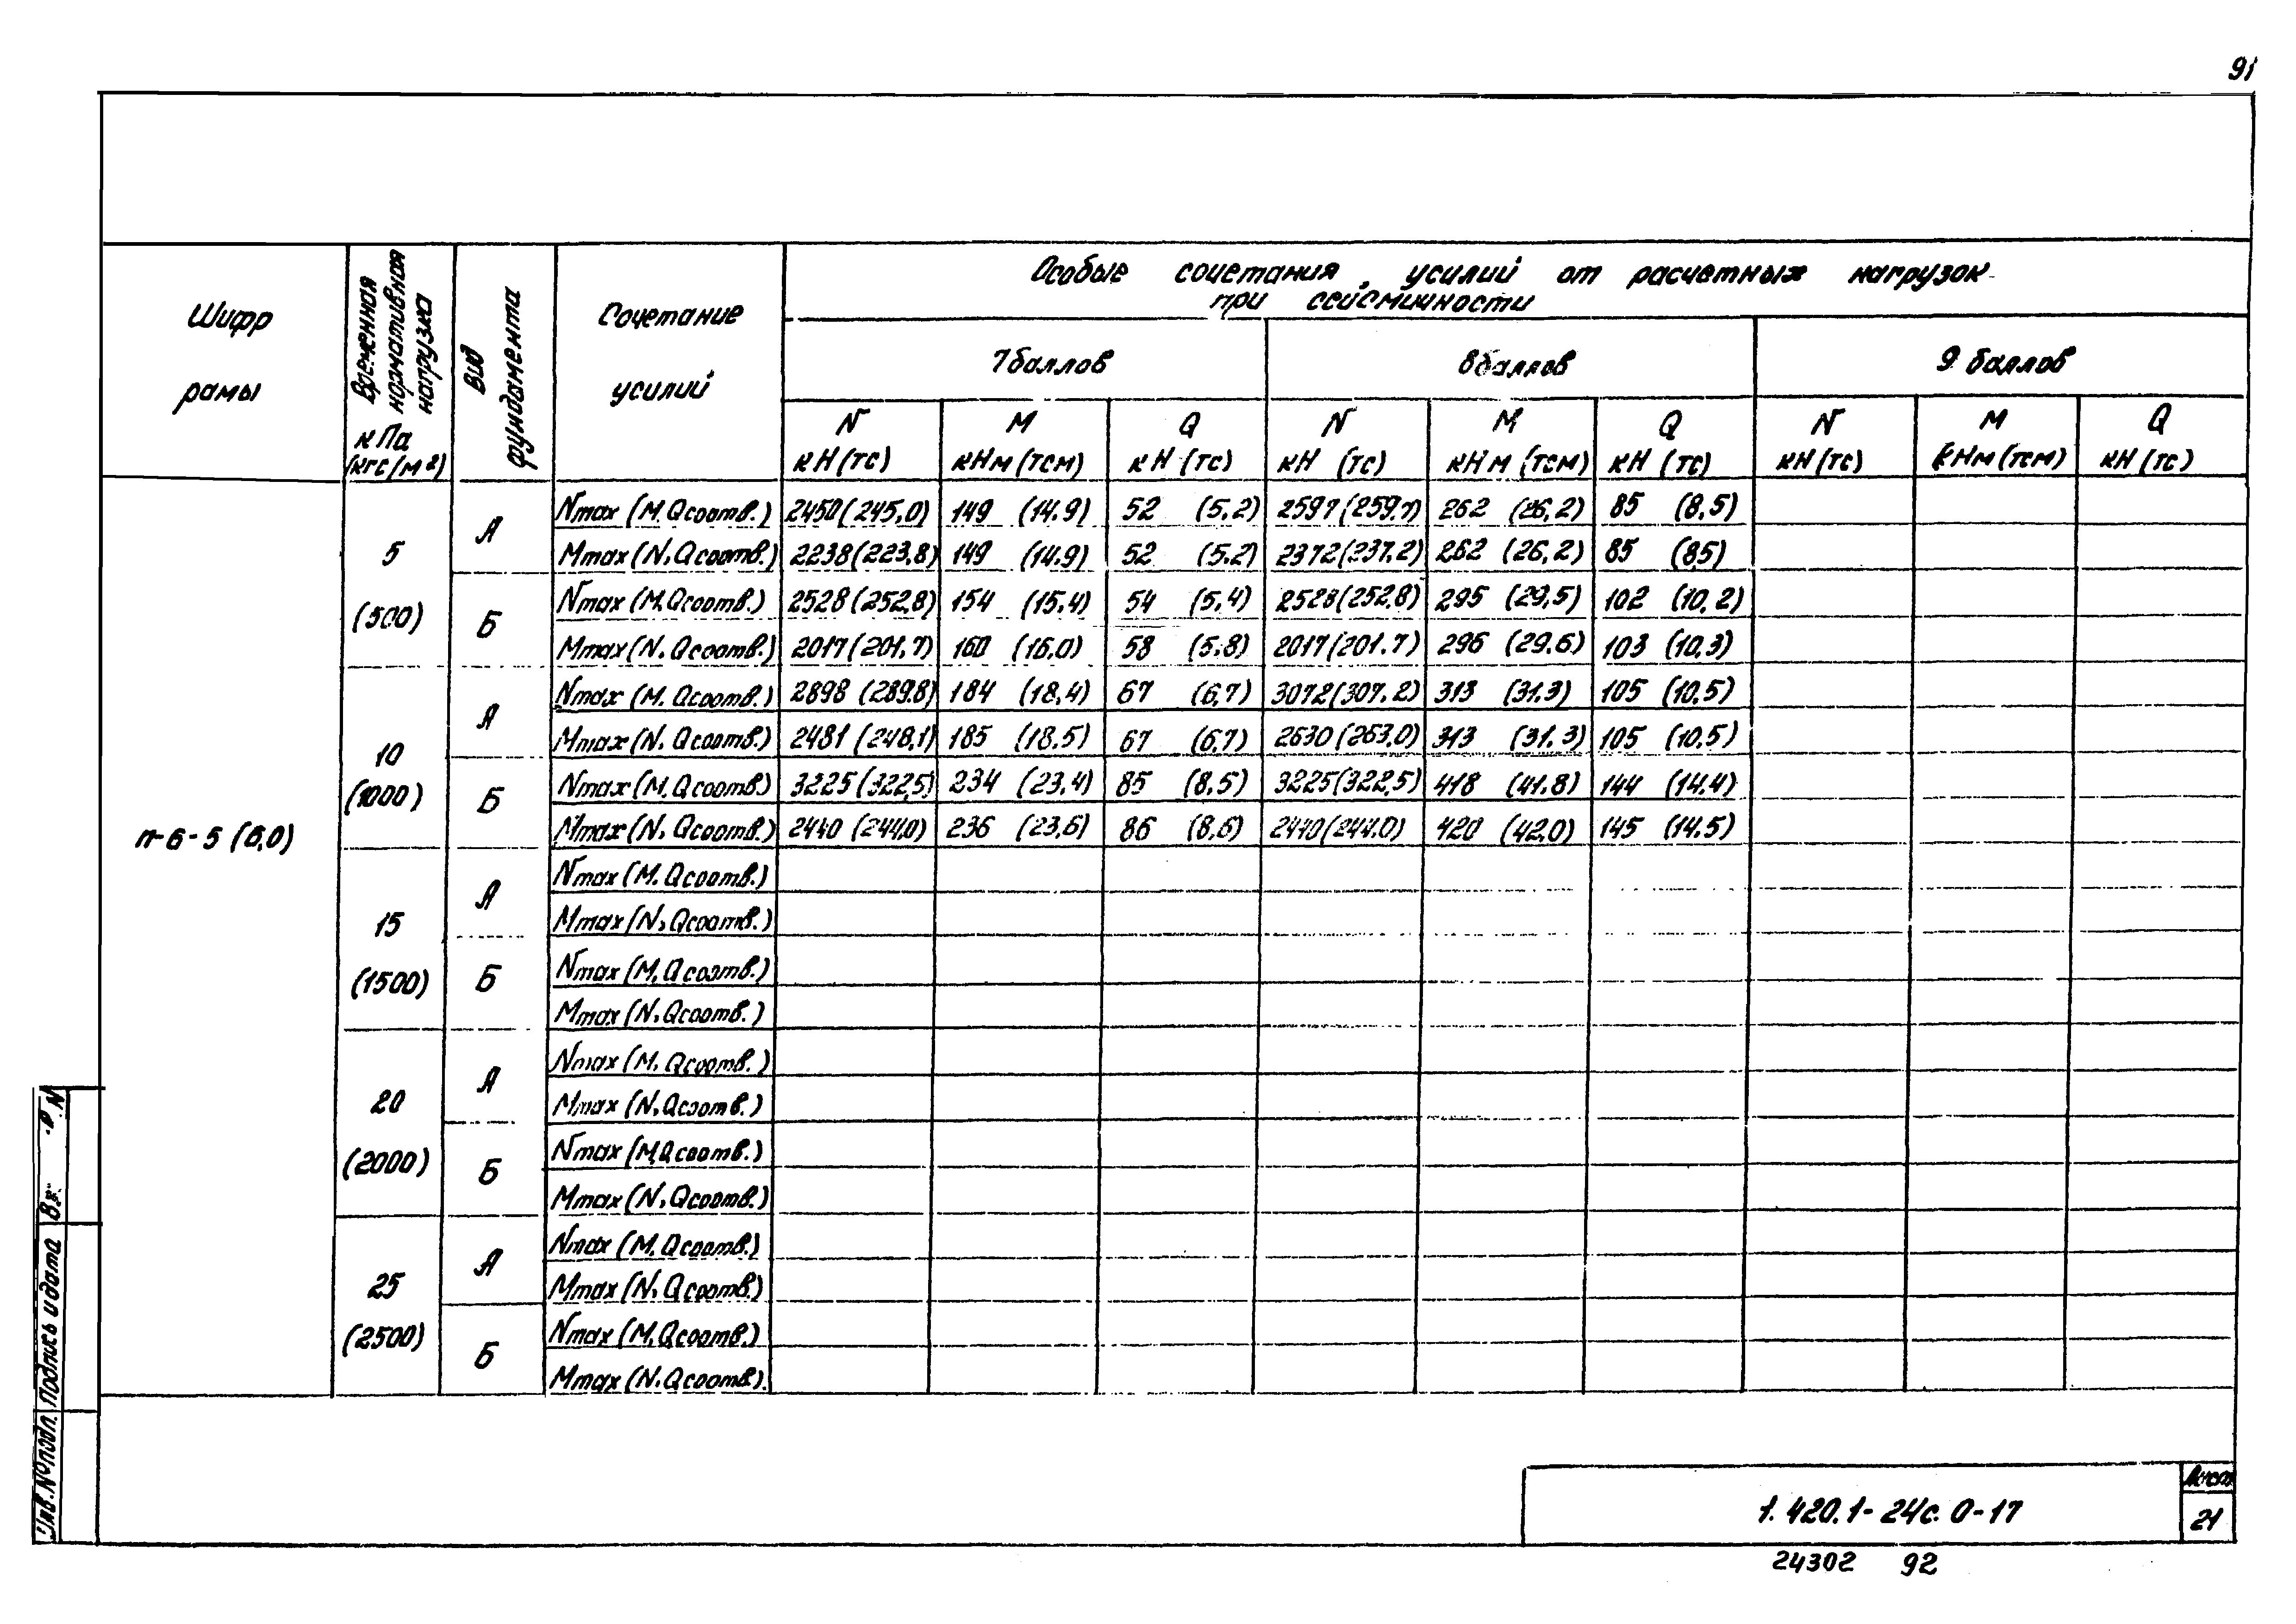 91
Шифр рамы
Временная нормативная нагрузка кПа (кгс/м²)
Вид фундамента
Сочетание усилий
Особые сочетания усилий от расчетных нагрузок
при сейсмичности
7 баллов 8 баллов 9 баллов
N кН (тс) M кНм (тсм) Q кН (тс) N кН (тс) M кНм (тсм) Q кН (тс) N кН (тс) M кНм (тсм) Q кН (тс)
п-6-5 (6,0)
5 (500)
А
Nmax (M, Qсоотв.) 2450 (245,0) 149 (14,9) 52 (5,2) 2597 (259,7) 262 (26,2) 85 (8,5)
Mmax (N, Qсоотв.) 2238 (223,8) 149 (14,9) 52 (5,2) 2372 (237,2) 262 (26,2) 85 (8,5)
Б
Nmax (M, Qсоотв.) 2528 (252,8) 154 (15,4) 54 (5,4) 2528 (252,8) 295 (29,5) 102 (10,2)
Mmax (N, Qсоотв.) 2017 (201,7) 160 (16,0) 58 (5,8) 2017 (201,7) 296 (29,6) 103 (10,3)
10 (1000)
А
Nmax (M, Qсоотв.) 2898 (289,8) 184 (18,4) 67 (6,7) 3072 (307,2) 313 (31,3) 105 (10,5)
Mmax (N, Qсоотв.) 2481 (248,1) 185 (18,5) 67 (6,7) 2630 (263,0) 313 (31,3) 105 (10,5)
Б
Nmax (M, Qсоотв.) 3225 (322,5) 234 (23,4) 85 (8,5) 3225 (322,5) 418 (41,8) 144 (14,4)
Mmax (N, Qсоотв.) 2440 (244,0) 236 (23,6) 86 (8,6) 2440 (244,0) 420 (42,0) 145 (14,5)
15 (1500)
А
Nmax (M, Qсоотв.)
Mmax (N, Qсоотв.)
Б
Nmax (M, Qсоотв.)
Mmax (N, Qсоотв.)
20 (2000)
А
Nmax (M, Qсоотв.)
Mmax (N, Qсоотв.)
Б
Nmax (M, Qсоотв.)
Mmax (N, Qсоотв.)
25 (2500)
А
Nmax (M, Qсоотв.)
Mmax (N, Qсоотв.)
Б
Nmax (M, Qсоотв.)
Mmax (N, Qсоотв.)
Инв. № подл. Подпись и дата
1.420.1-24с.0-17
Лист
21
24302 92